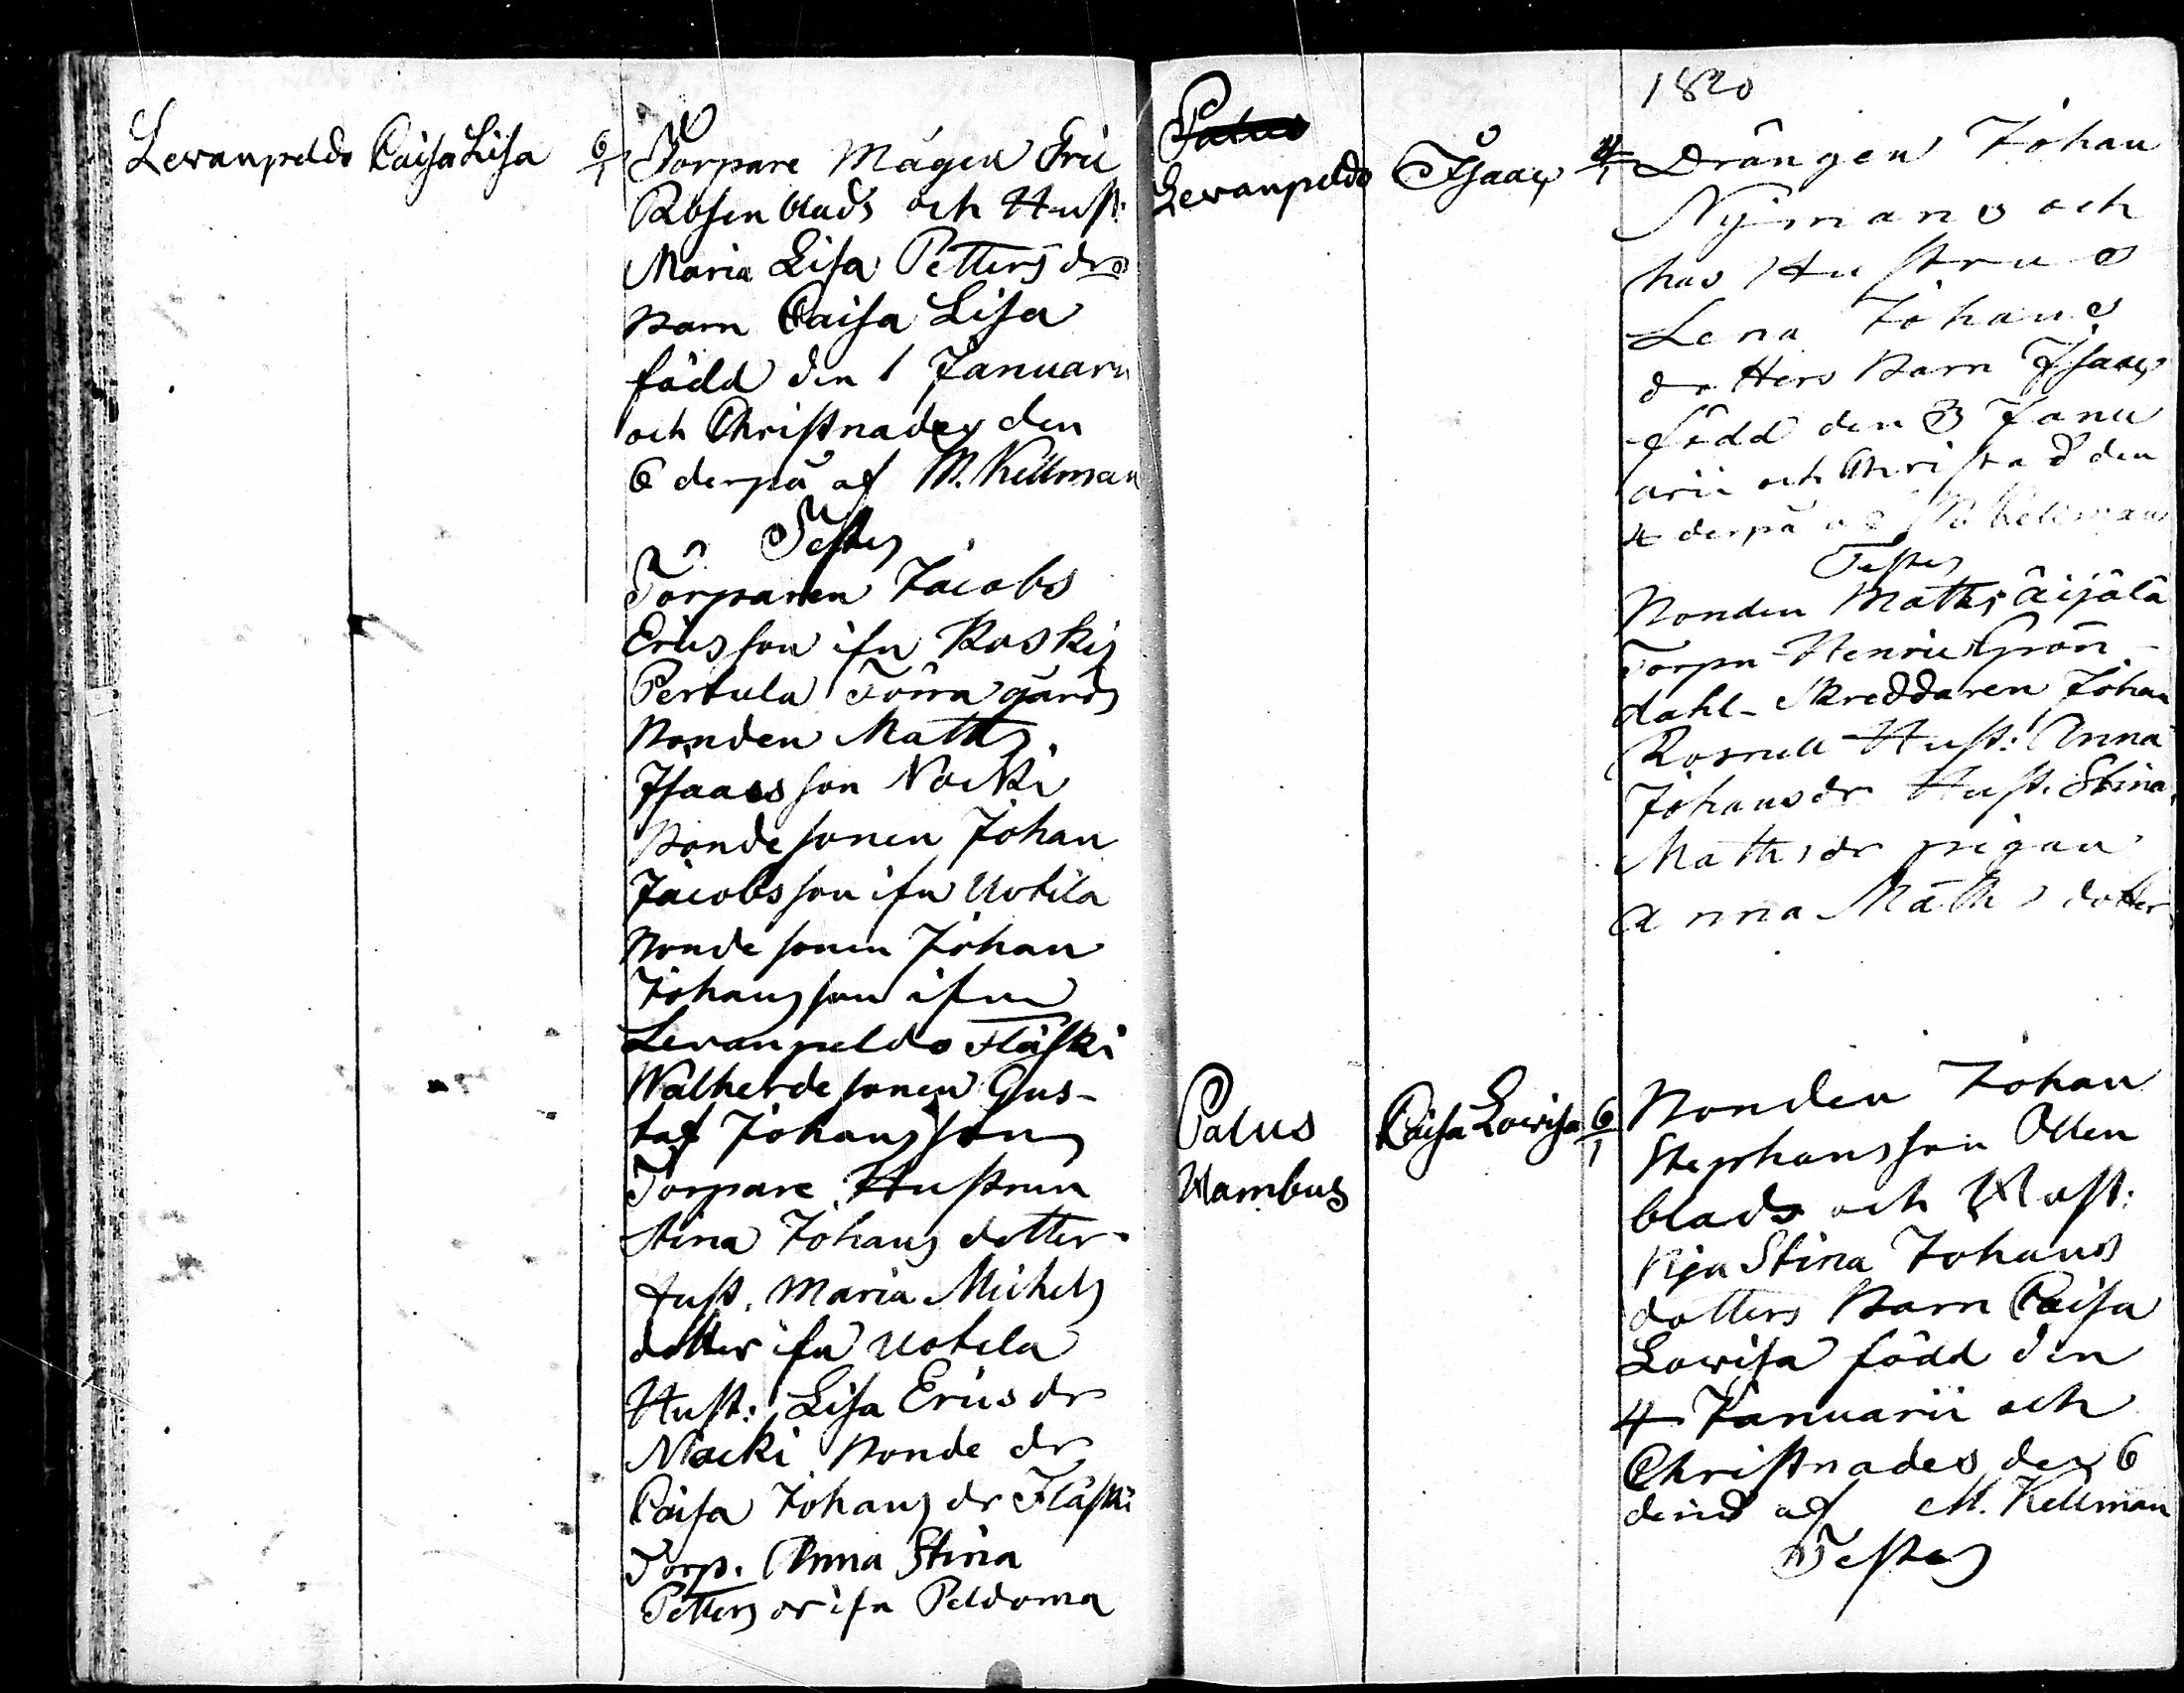 Levanpeldo Caisa Lisa 6/1 Torpare Mågen Eric
Rosenblads och Hust:
Maria Lisa Petters dr
Barn Caisa Lisa
född den 1 Januarii
och Christnades den
6 derpå af M. Kellman
Testes
Torparen Jacobs
Ericsson ifrn Koskis
Pertula Torra gårds
Bonden Matts
Isaacsson Nocki
Bondesonen Johan
Jacobsson ifrn Uotila
Bondesonen Johan
Johansson ifrn
Levanpeldo Fläski
Walherdesonen Gus-
taf Johansson
Torpare Hustrun
Stina Johans dotter
Hust. Maria Michels
dotter ifrn Uotila
Hust: Lisa Erics dr
Nocki Bonde dr
Caisa Johans dr Fläski
Torp. Anna Stina
Petters dr ifrn Peldoma
1820
Palus
Levanpeldo Isaac 4/1 Drängen Johan
Nymans och
has Hustrus
Lena Johans
dr Hers Barn Isaac
född den 3 Janu
arii och Christnad den
4 derpå af M Kellman
Testes
Bonden Matts Äijälä
Torpn Henric Grön
dahl - Skreddaren Johan
Rosnell Hust: Anna
Johansdr Hust. Stina
Matts dr pigan
Anna Matts dotter
Palus
Wambus
Caisa Lovisa 6/1 Bonden Johan
Stephansson Ollen
blads och Hust:
Stina Johans
dotters Barn Caisa
Lovisa född den
4 Januarii och
Christnades den 6
derpå af M. Kellman
Testes